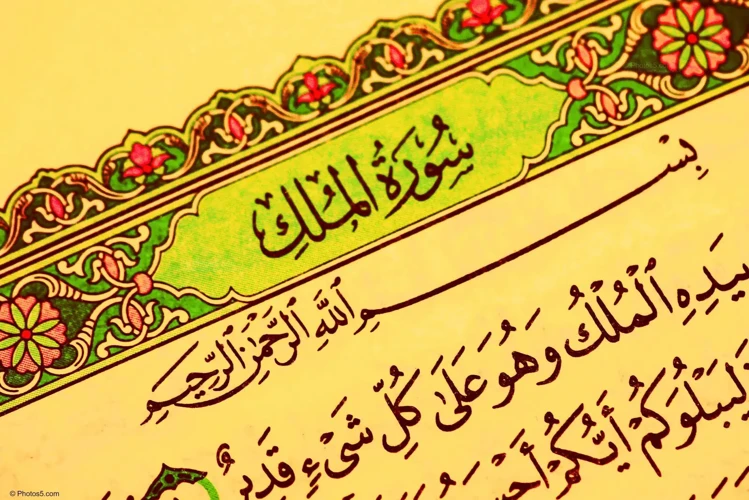 سُورَةُ الْمُلْكِ
بِسْمِ اللَّهِ الرَّحْمَٰنِ الرَّحِيمِ
بِيَدِهِ الْمُلْكُ وَهُوَ عَلَىٰ كُلِّ شَيْءٍ قَدِيرٌ
لِيَبْلُوَكُمْ أَيُّكُمْ
© Photos5.com